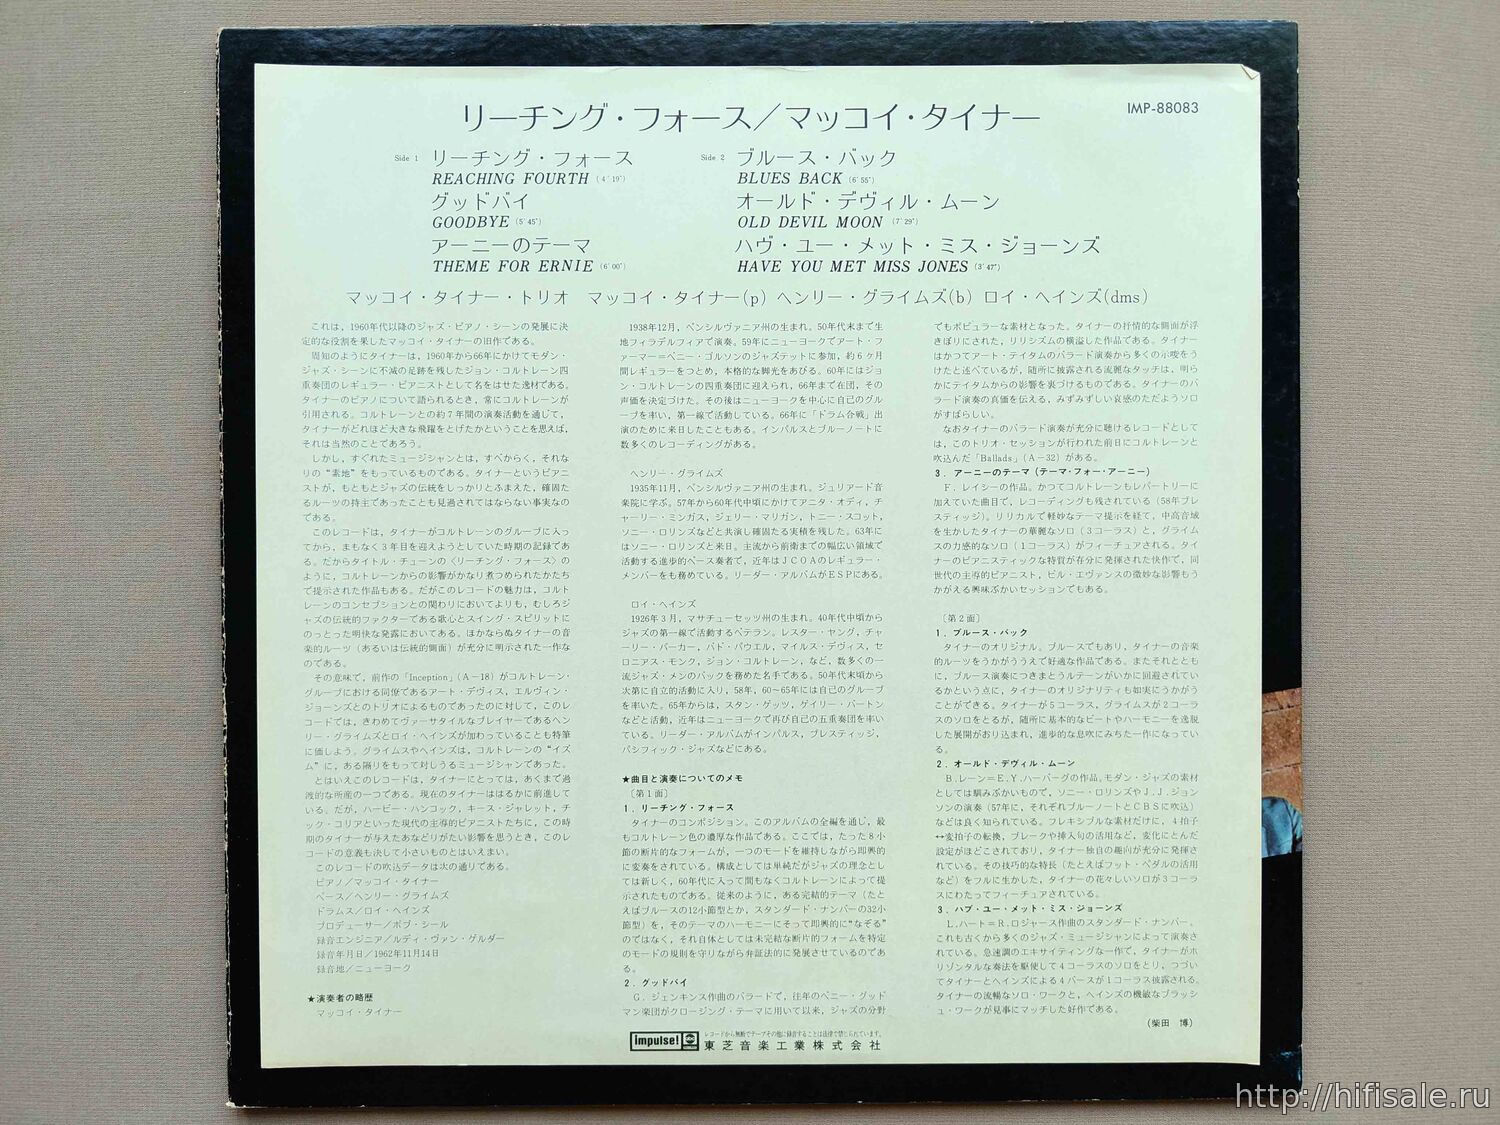 リーチング・フォース／マッコイ・タイナー
IMP-88083
Side 1 リーチング・フォース
REACHING FOURTH (4′19″)
グッドバイ
GOODBYE (5′45″)
アーニーのテーマ
THEME FOR ERNIE (6′00″)
Side 2 ブルース・バック
BLUES BACK (6′55″)
オールド・デヴィル・ムーン
OLD DEVIL MOON (7′29″)
ハヴ・ユー・メット・ミス・ジョーンズ
HAVE YOU MET MISS JONES (3′47″)
マッコイ・タイナー・トリオ　マッコイ・タイナー(p) ヘンリー・グライムズ(b) ロイ・ヘインズ(dms)
これは，1960年代以降のジャズ・ピアノ・シーンの発展に決
定的な役割を果したマッコイ・タイナーの旧作である。
周知のようにタイナーは，1960年から66年にかけてモダン・
ジャズ・シーンに不滅の足跡を残したジョン・コルトレーン四
重奏団のレギュラー・ピアニストとして名をはせた逸材である。
タイナーのピアノについて語られるとき，常にコルトレーンが
引用される。コルトレーンとの約7年間の演奏活動を通じて，
タイナーがどれほど大きな飛躍をとげたかということを思えば，
それは当然のことであろう。
しかし，すぐれたミュージシャンとは，すべからく，それな
りの“素地”をもっているものである。タイナーというピアニ
ストが，もともとジャズの伝統をしっかりとふまえた，確固た
るルーツの持主であったことも見過されてはならない事実なの
である。
このレコードは，タイナーがコルトレーンのグループに入っ
てから，まもなく3年目を迎えようとしていた時期の記録であ
る。だからタイトル・チューンの〈リーチング・フォース〉の
ように，コルトレーンからの影響がかなり煮つめられたかたち
で提示された作品もある。だがこのレコードの魅力は，コルト
レーンのコンセプションとの関わりにおいてよりも，むしろジ
ャズの伝統的ファクターである歌心とスイング・スピリットに
のっとった明快な発露においてある。ほかならぬタイナーの音
楽的ルーツ（あるいは伝統的側面）が充分に明示された一作な
のである。
その意味で，前作の「Inception」(A－18) がコルトレーン・
グループにおける同僚であるアート・デヴィス，エルヴィン・
ジョーンズとのトリオによるものであったのに対して，このレ
コードでは，きわめてヴァーサタイルなプレイヤーであるヘン
リー・グライムズとロイ・ヘインズが加わっていることも特筆
に価しよう。グライムスやヘインズは，コルトレーンの“イズ
ム”に，ある隔りをもって対しうるミュージシャンであった。
とはいえこのレコードは，タイナーにとっては，あくまで過
渡的な所産の一つである。現在のタイナーははるかに前進して
いる。だが，ハービー・ハンコック，キース・ジャレット，チ
ック・コリアといった現代の主導的ピアニストたちに，この時
期のタイナーが与えたあなどりがたい影響を思うとき，このレ
コードの意義も決して小さいものとはいえまい。
このレコードの吹込データは次の通りである。
ピアノ／マッコイ・タイナー
ベース／ヘンリー・グライムズ
ドラムス／ロイ・ヘインズ
プロデューサー／ボブ・シール
録音エンジニア／ルディ・ヴァン・ゲルダー
録音年月日／1962年11月14日
録音地／ニューヨーク
★演奏者の略歴
マッコイ・タイナー
1938年12月，ペンシルヴァニア州の生まれ。50年代末まで生
地フィラデルフィアで演奏。59年にニューヨークでアート・フ
ァーマー＝ベニー・ゴルソンのジャズテットに参加，約6ヶ月
間レギュラーをつとめ，本格的な脚光をあびる。60年にはジョ
ン・コルトレーンの四重奏団に迎えられ，66年まで在団，その
声価を決定づけた。その後はニューヨークを中心に自己のグル
ープを率い，第一線で活動している。66年に「ドラム合戦」出
演のために来日したこともある。インパルスとブルーノートに
数多くのレコーディングがある。
ヘンリー・グライムズ
1935年11月，ペンシルヴァニア州の生まれ。ジュリアード音
楽院に学ぶ。57年から60年代中頃にかけてアニタ・オディ，チ
ャーリー・ミンガス，ジェリー・マリガン，トニー・スコット，
ソニー・ロリンズなどと共演し確固たる実積を残した。63年に
はソニー・ロリンズと来日。主流から前衛までの幅広い領域で
活動する進歩的ベース奏者で，近年はＪＣＯＡのレギュラー・
メンバーをも務めている。リーダー・アルバムがＥＳＰにある。
ロイ・ヘインズ
1926年3月，マサチューセッツ州の生まれ。40年代中頃から
ジャズの第一線で活動するベテラン。レスター・ヤング，チャ
ーリー・パーカー，バド・パウエル，マイルス・デヴィス，セ
ロニアス・モンク，ジョン・コルトレーン，など，数多くの一
流ジャズ・メンのバックを務めた名手である。50年代末頃から
次第に自立的活動に入り，58年，60～65年には自己のグループ
を率いた。65年からは，スタン・ゲッツ，ゲイリー・バートン
などと活動，近年はニューヨークで再び自己の五重奏団を率い
ている。リーダー・アルバムがインパルス，プレスティッジ，
パシフィック・ジャズなどにある。
★曲目と演奏についてのメモ
〔第1面〕
1．リーチング・フォース
タイナーのコンポジション。このアルバムの全編を通じ，最
もコルトレーン色の濃厚な作品である。ここでは，たった8小
節の断片的なフォームが，一つのモードを維持しながら即興的
に変奏をされている。構成としては単純だがジャズの理念とし
ては新しく，60年代に入って間もなくコルトレーンによって提
示されたものである。従来のように，ある完結的テーマ（たと
えばブルースの12小節型とか，スタンダード・ナンバーの32小
節型）を，そのテーマのハーモニーにそって即興的に“なぞる”
のではなく，それ自体としては未完結な断片的フォームを特定
のモードの規則を守りながら弁証法的に発展させているのであ
る。
2．グッドバイ
Ｇ．ジェンキンス作曲のバラードで，往年のベニー・グッド
マン楽団がクロージング・テーマに用いて以来，ジャズの分野
でもポピュラーな素材となった。タイナーの抒情的な側面が浮
きぼりにされた，リリシズムの横溢した作品である。タイナー
はかつてアート・テイタムのバラード演奏から多くの示唆をう
けたと述べているが，随所に披露される流麗なタッチは，明ら
かにテイタムからの影響を裏づけるものである。タイナーのバ
ラード演奏の真価を伝える，みずみずしい哀感のただようソロ
がすばらしい。
なおタイナーのバラード演奏が充分に聴けるレコードとして
は，このトリオ・セッションが行われた前日にコルトレーンと
吹込んだ「Ballads」(A－32) がある。
3．アーニーのテーマ（テーマ・フォー・アーニー）
Ｆ．レイシーの作品。かつてコルトレーンもレパートリーに
加えていた曲目で，レコーディングも残されている（58年プレ
スティッジ）。リリカルで軽妙なテーマ提示を経て，中高音域
を生かしたタイナーの華麗なソロ（3コーラス）と，グライム
スの力感的なソロ（1コーラス）がフィーチュアされる。タイ
ナーのピアニスティックな特質が存分に発揮された快作で，同
世代の主導的ピアニスト，ビル・エヴァンスの微妙な影響もう
かがえる興味ぶかいセッションでもある。
〔第2面〕
1．ブルース・バック
タイナーのオリジナル。ブルースでもあり，タイナーの音楽
的ルーツをうかがううえで好適な作品である。またそれととも
に，ブルース演奏につきまとうルテーンがいかに回避されてい
るかという点に，タイナーのオリジナリティも如実にうかがう
ことができる。タイナーが5コーラス，グライムスが2コーラ
スのソロをとるが，随所に基本的なビートやハーモニーを逸脱
した展開がおり込まれ，進歩的な息吹にみちた一作になってい
る。
2．オールド・デヴィル・ムーン
Ｂ.レーン＝Ｅ.Ｙ.ハーバーグの作品。モダン・ジャズの素材
としては馴みぶかいもので，ソニー・ロリンズやＪ.Ｊ.ジョン
ソンの演奏（57年に，それぞれブルーノートとＣＢＳに吹込）
などは良く知られている。フレキシブルな素材だけに，4拍子
↔変拍子の転換，ブレークや挿入句の活用など，変化にとんだ
設定がほどこされており，タイナー独自の趣向が充分に発揮さ
れている。その技巧的な特長（たとえばフット・ペダルの活用
など）をフルに生かした，タイナーの花々しいソロが3コーラ
スにわたってフィーチュアされている。
3．ハブ・ユー・メット・ミス・ジョーンズ
Ｌ.ハート＝Ｒ.ロジャース作曲のスタンダード・ナンバー。
これも古くから多くのジャズ・ミュージシャンによって演奏さ
れている。急速調のエキサイティングな一作で，タイナーがホ
リゾンタルな奏法を駆使して4コーラスのソロをとり，つづい
てタイナーとヘインズによる4バースが1コーラス披露される。
タイナーの流暢なソロ・ワークと，ヘインズの機敏なブラッシ
ュ・ワークが見事にマッチした好作である。
（柴田　博）
impulse! abc
レコードから無断でテープその他に録音することは法律で禁じられています。
東芝音楽工業株式会社
http://hifisale.ru